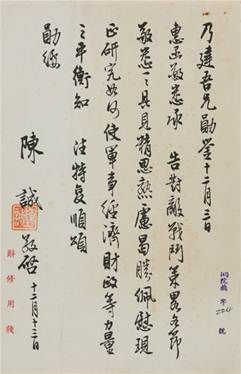 乃建吾兄勛鑒十二月三日
惠函敬悉承 告對敵戰鬥策畧各節
敬悉一一具見精思熟慮曷勝佩慰現
正研究如何使軍事經濟財政等力量
之平衡知 注特复順頌
勛綏
陳誠敬啓 十二月十三日
辭修用箋
字 號